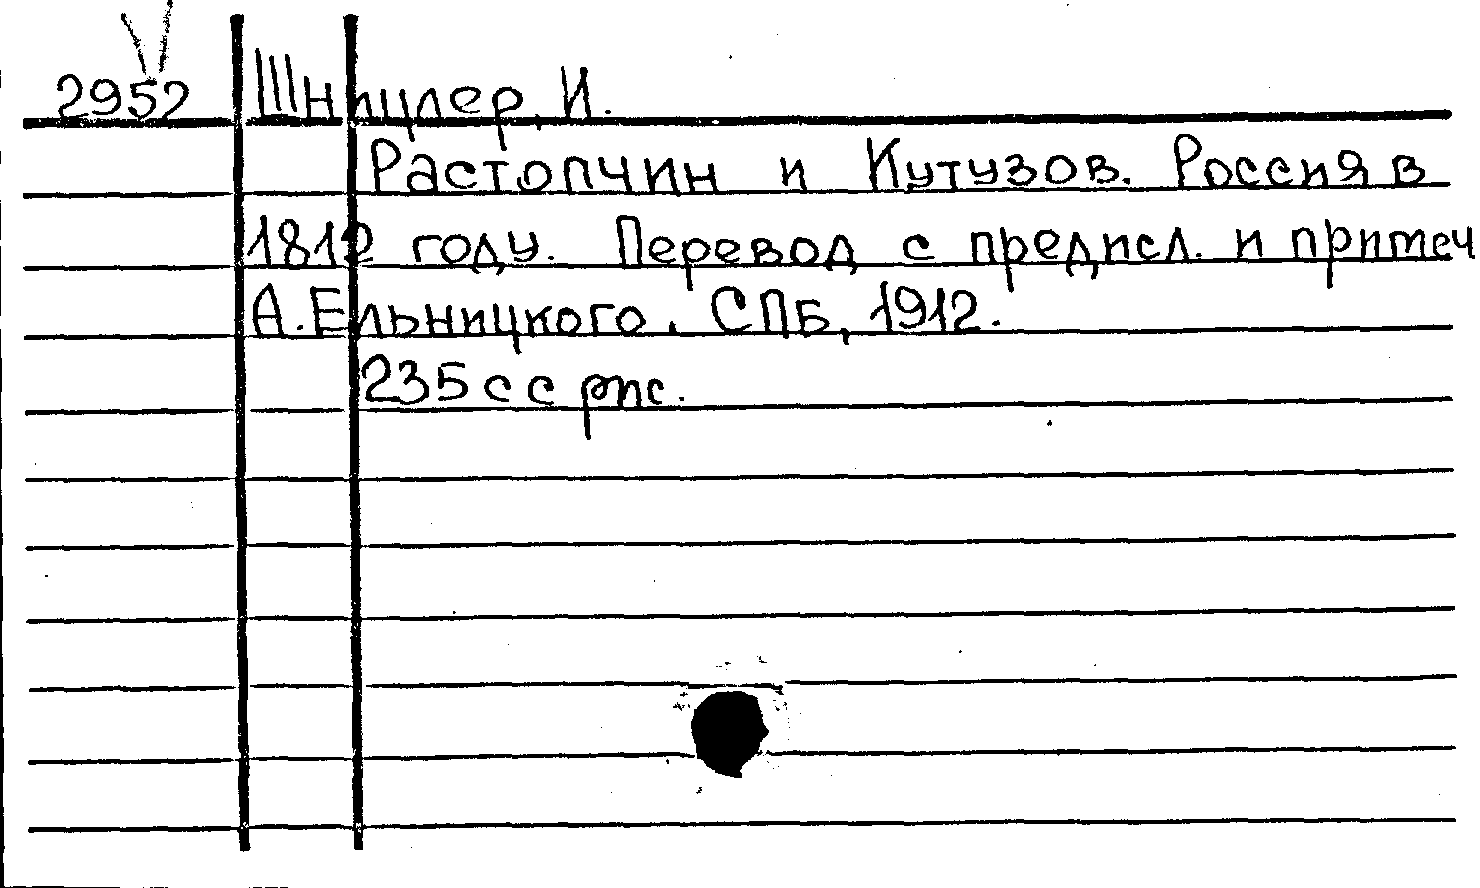 2952 Шницлер, И.
Растопчин и Кутузов. Россия в
1812 году. Перевод с предисл. и примеч
А. Ельницкого. СПБ, 1912.
235 с с рис.